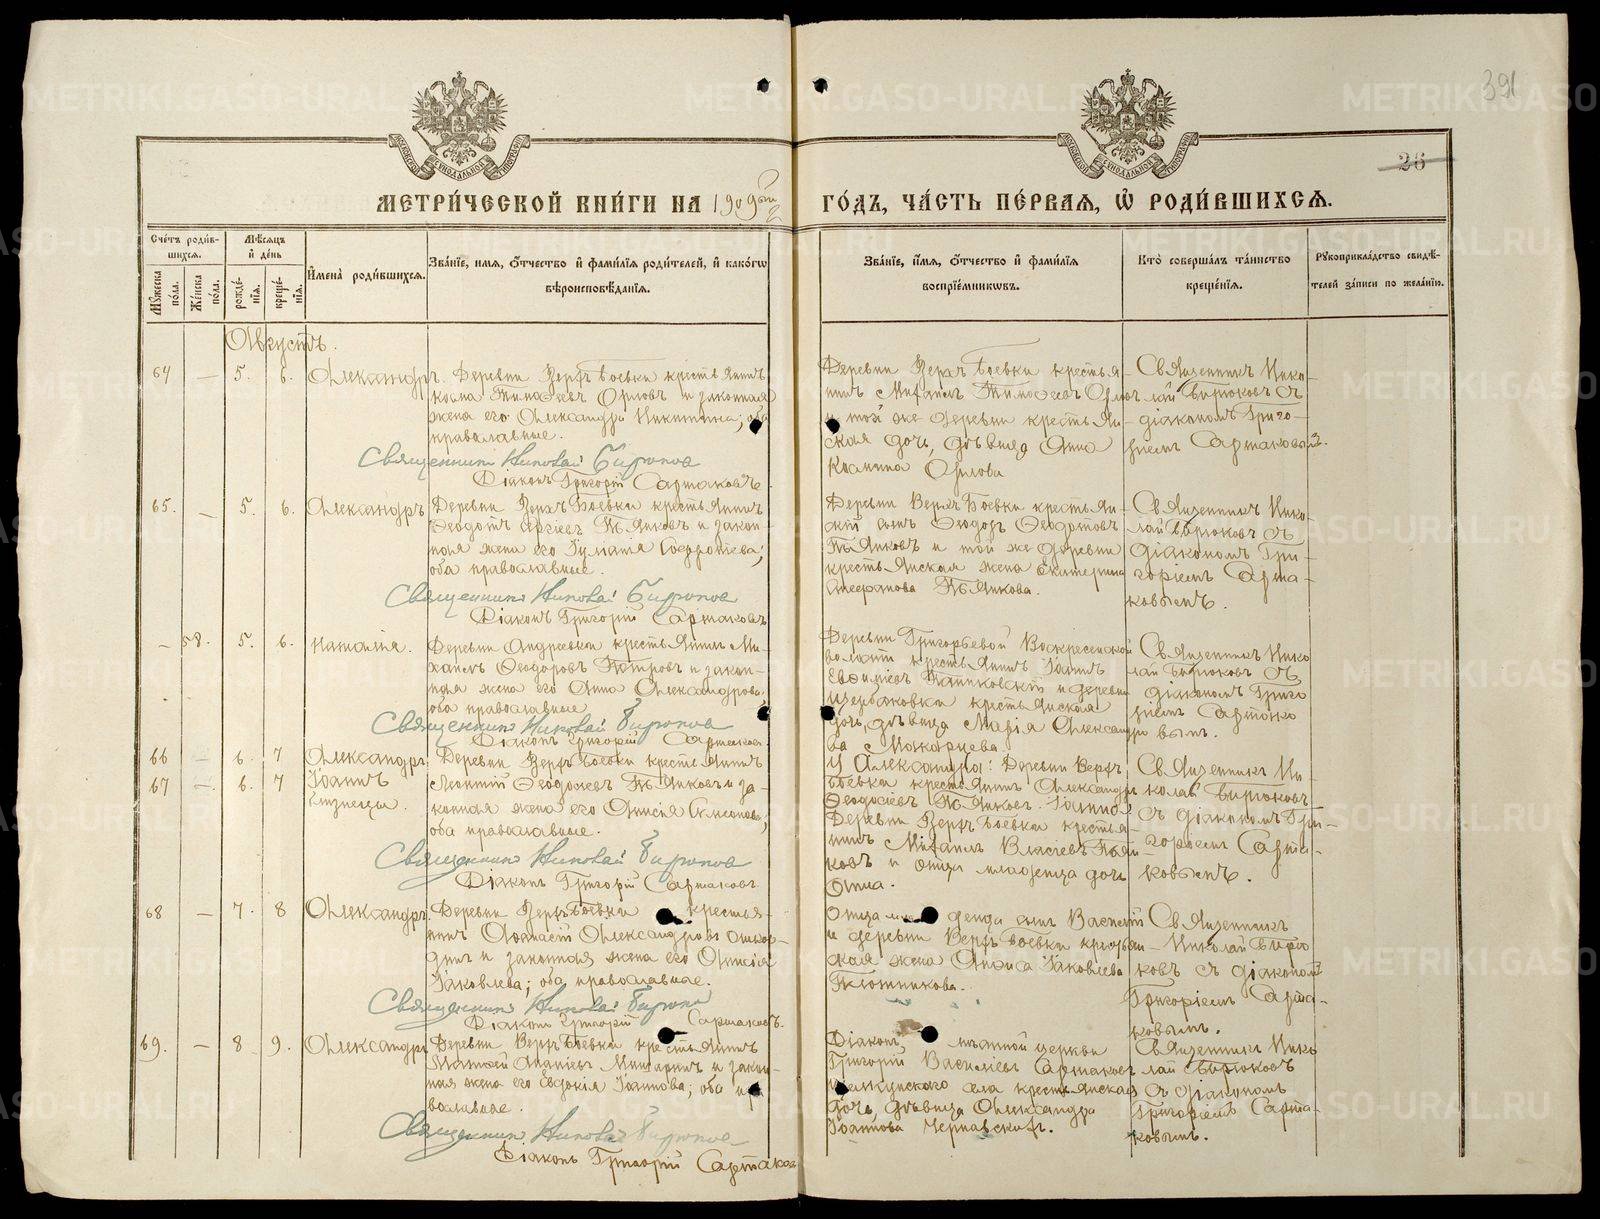 391
26
МЕТРИ́ЧЕСКОЙ КНИ́ГИ НА 1909 ГО́ДЪ, ЧА́СТЬ ПЕ́РВАЯ, Ѡ РОДИ́ВШИХСЯ.
Сче́тъ роди́в-
шихся.
Мѣ́сяцъ
и де́нь
Му́жеска по́ла.
Же́нска по́ла.
рожде́-
нія.
креще́-
нія.
Имена̀ роди́вшихся.
Зва́ніе, имя, о́тчество и фами́лія роди́телей, и како́гѡ
вѣроисповѣ́данія.
Зва́ніе, и́мя, о́тчество и фами́лія
воспріе́мникѡвъ.
Кто̀ соверша́лъ та́инство
креще́нія.
Рꙋкоприкла́дство свидѣ́-
телей за́писи по жела́нію.
Августъ.
64 — 5. 6. Александръ.
Деревни Верхъ Боевки крестьянинъ
Косма Тимофеевъ Орловъ и законная
жена его Александра Никитина; оба
православные.
Священникъ Николай Бирюковъ
Діаконъ Григорій Сартаковъ.
Деревни Верхъ Боевки крестья-
нинъ Михаилъ Тимофеевъ Орловъ
и той же деревни крестьян-
ская дочь, дѣвица Анна
Космина Орлова
Священникъ Нико-
лай Бирюковъ съ
діакономъ Григо-
ріемъ Сартаковымъ.
65. — 5. 6. Александръ
Деревни Верхъ Боевки крестьянинъ
Ѳеодотъ Пьянковъ и закон-
ная жена его Іуліанія Софроніева;
оба православные.
Священникъ Николай Бирюковъ
Діаконъ Григорій Сартаковъ
Деревни Верхъ Боевки крестьян-
скій сынъ Ѳеодоръ Ѳеодотовъ
Пьянковъ и той же деревни
крестьянская жена Екатерина
Стефанова Пьянкова.
Священникъ Нико-
лай Бирюковъ съ
діакономъ Гри-
горіемъ Сарта-
ковымъ.
— 58. 5. 6. Наталія.
Деревни Андреевки крестьянинъ Ми-
хаилъ Ѳеодоровъ Петровъ и закон-
ная жена его Анна Александрова;
оба православные
Священникъ Николай Бирюковъ
Діаконъ Григорій Сартаковъ
Деревни Григорьевой Воскресенской
волости крестьянинъ Іоаннъ
Евфиміевъ и деревни
Щербаковки крестьянская
дочь, дѣвица Марія Александро-
ва Макарцева.
Священникъ Нико
лай Бирюковъ съ
діакономъ Григо
ріемъ Сартако
вымъ.
66 — 6. 7 Александръ
67 — 6. 7 Іоаннъ
близнецы.
Деревни Верхъ Боевки крестьянинъ
Леонтій Ѳеодосіевъ Пьянковъ и за-
конная жена его Анисія Самсонова;
оба православные.
Священникъ Николай Бирюковъ
Діаконъ Григорій Сартаковъ
У Александра: Деревни Верхъ
Боевки крестьянинъ Александръ
Ѳеодосіевъ Пьянковъ. Іоанна:
Деревни Верхъ Боевки крестья-
нинъ Михаилъ Власіевъ Пьян-
ковъ и отца младенца дочь
Анна.
Священникъ Ни-
колай Бирюковъ
съ діакономъ Гри-
горіемъ Сарта-
ковымъ.
68 — 7. 8 Александръ
Деревни Верхъ Боевки крестья-
нинъ Аѳанасій Александровъ
и законная жена его Анисія
Іаковлева; оба православные.
Священникъ Николай Бирюковъ
Діаконъ Григорій Сартаковъ.
Отца сынъ Василій
и деревни Верхъ Боевки крестьян-
ская жена Анфиса Іаковлева
Плотникова.
Священникъ
Николай Бирю
ковъ съ діакономъ
Григоріемъ Сарта-
ковымъ.
69. — 8 9. Александръ
Деревни Верхъ Боевки крестьянинъ
и закон-
ная жена его Евдокія Іоаннова; оба пра
вославные.
Священникъ Николай Бирюковъ
Діаконъ Григорій Сартаковъ
Діаконъ мѣстной церкви
Григорій Василіевъ Сартаковъ
села крестьянская
дочь, дѣвица Александра
Іоаннова Чернавскихъ.
Священникъ Нико
лай Бирюковъ
съ діакономъ
Григоріемъ Сарта-
ковымъ.